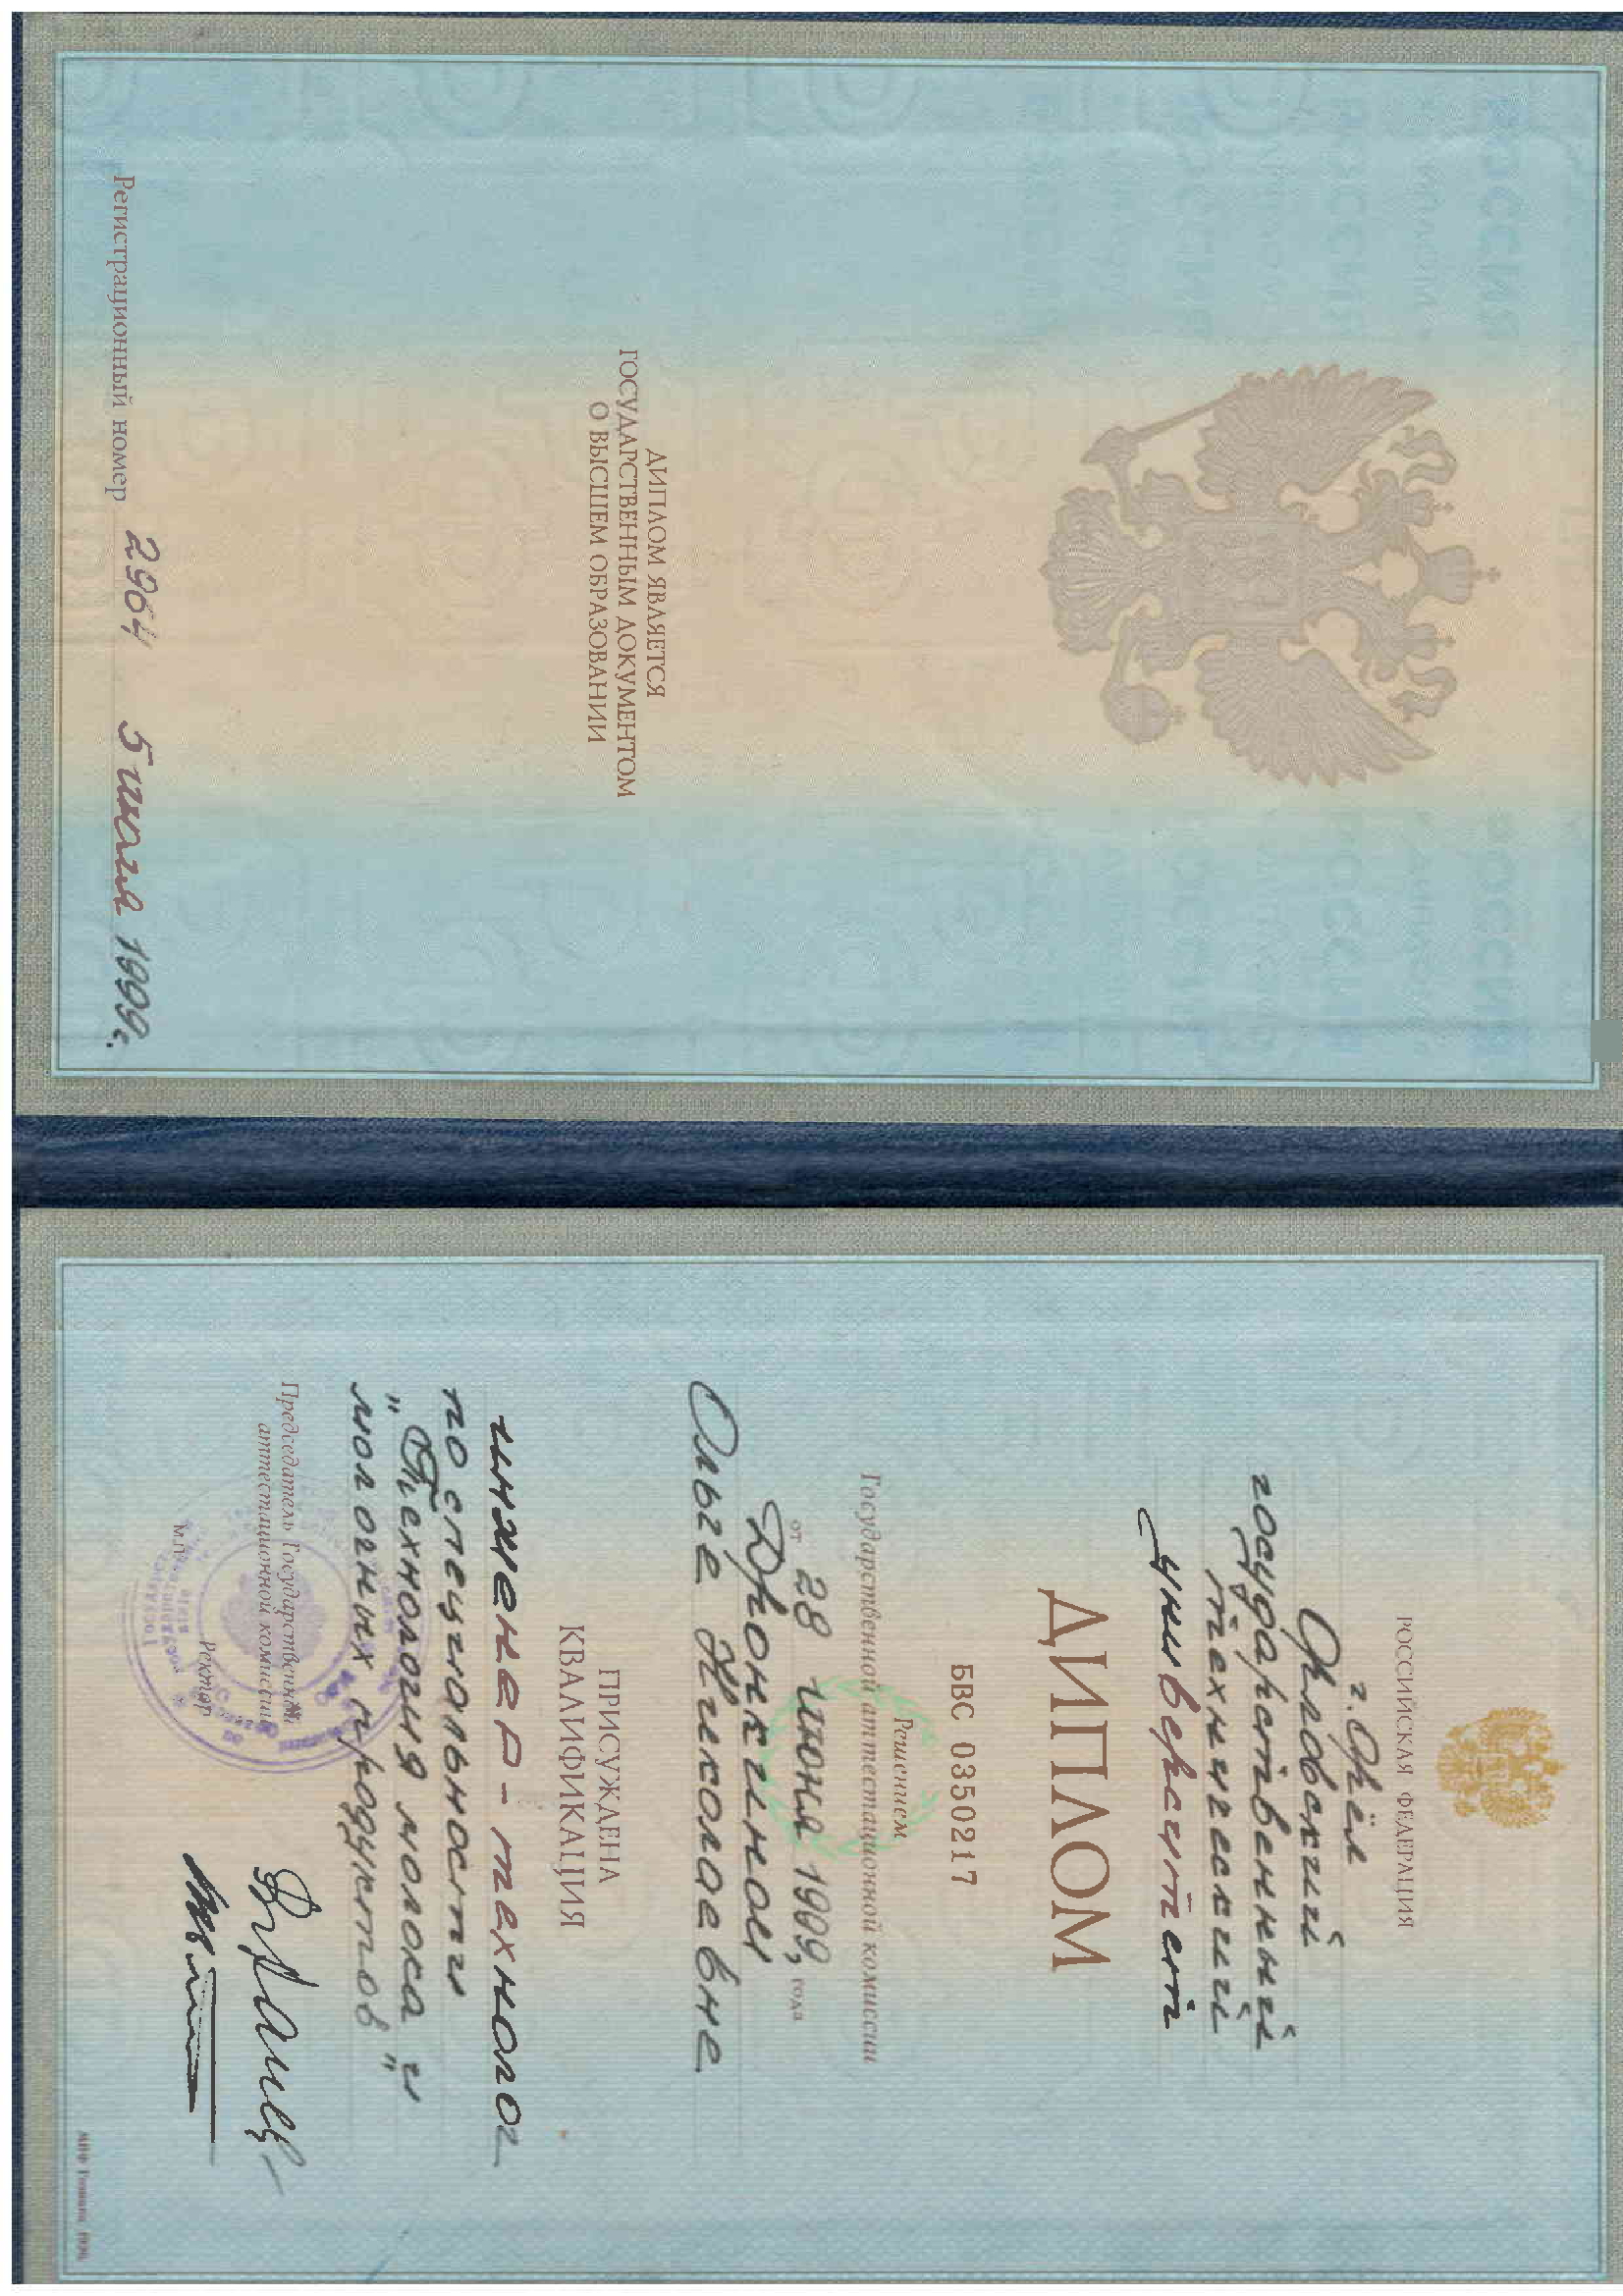 ДИПЛОМ ЯВЛЯЕТСЯ
ГОСУДАРСТВЕННЫМ ДОКУМЕНТОМ
О ВЫСШЕМ ОБРАЗОВАНИИ
Регистрационный номер 2964 5 июля 1999г.
РОССИЙСКАЯ ФЕДЕРАЦИЯ
г. Орёл
Орловский
государственный
технический
университет
ДИПЛОМ
БВС 0350217
Решением
Государственной аттестационной комиссии
от 28 июня 1999, года
Дронкиной
Ольге Николаевне
ПРИСУЖДЕНА
КВАЛИФИКАЦИЯ
инженер-технолог
по специальности
"Технология молока и
молочных продуктов"
Председатель Государственной
аттестационной комиссии
Ректор
М.П.